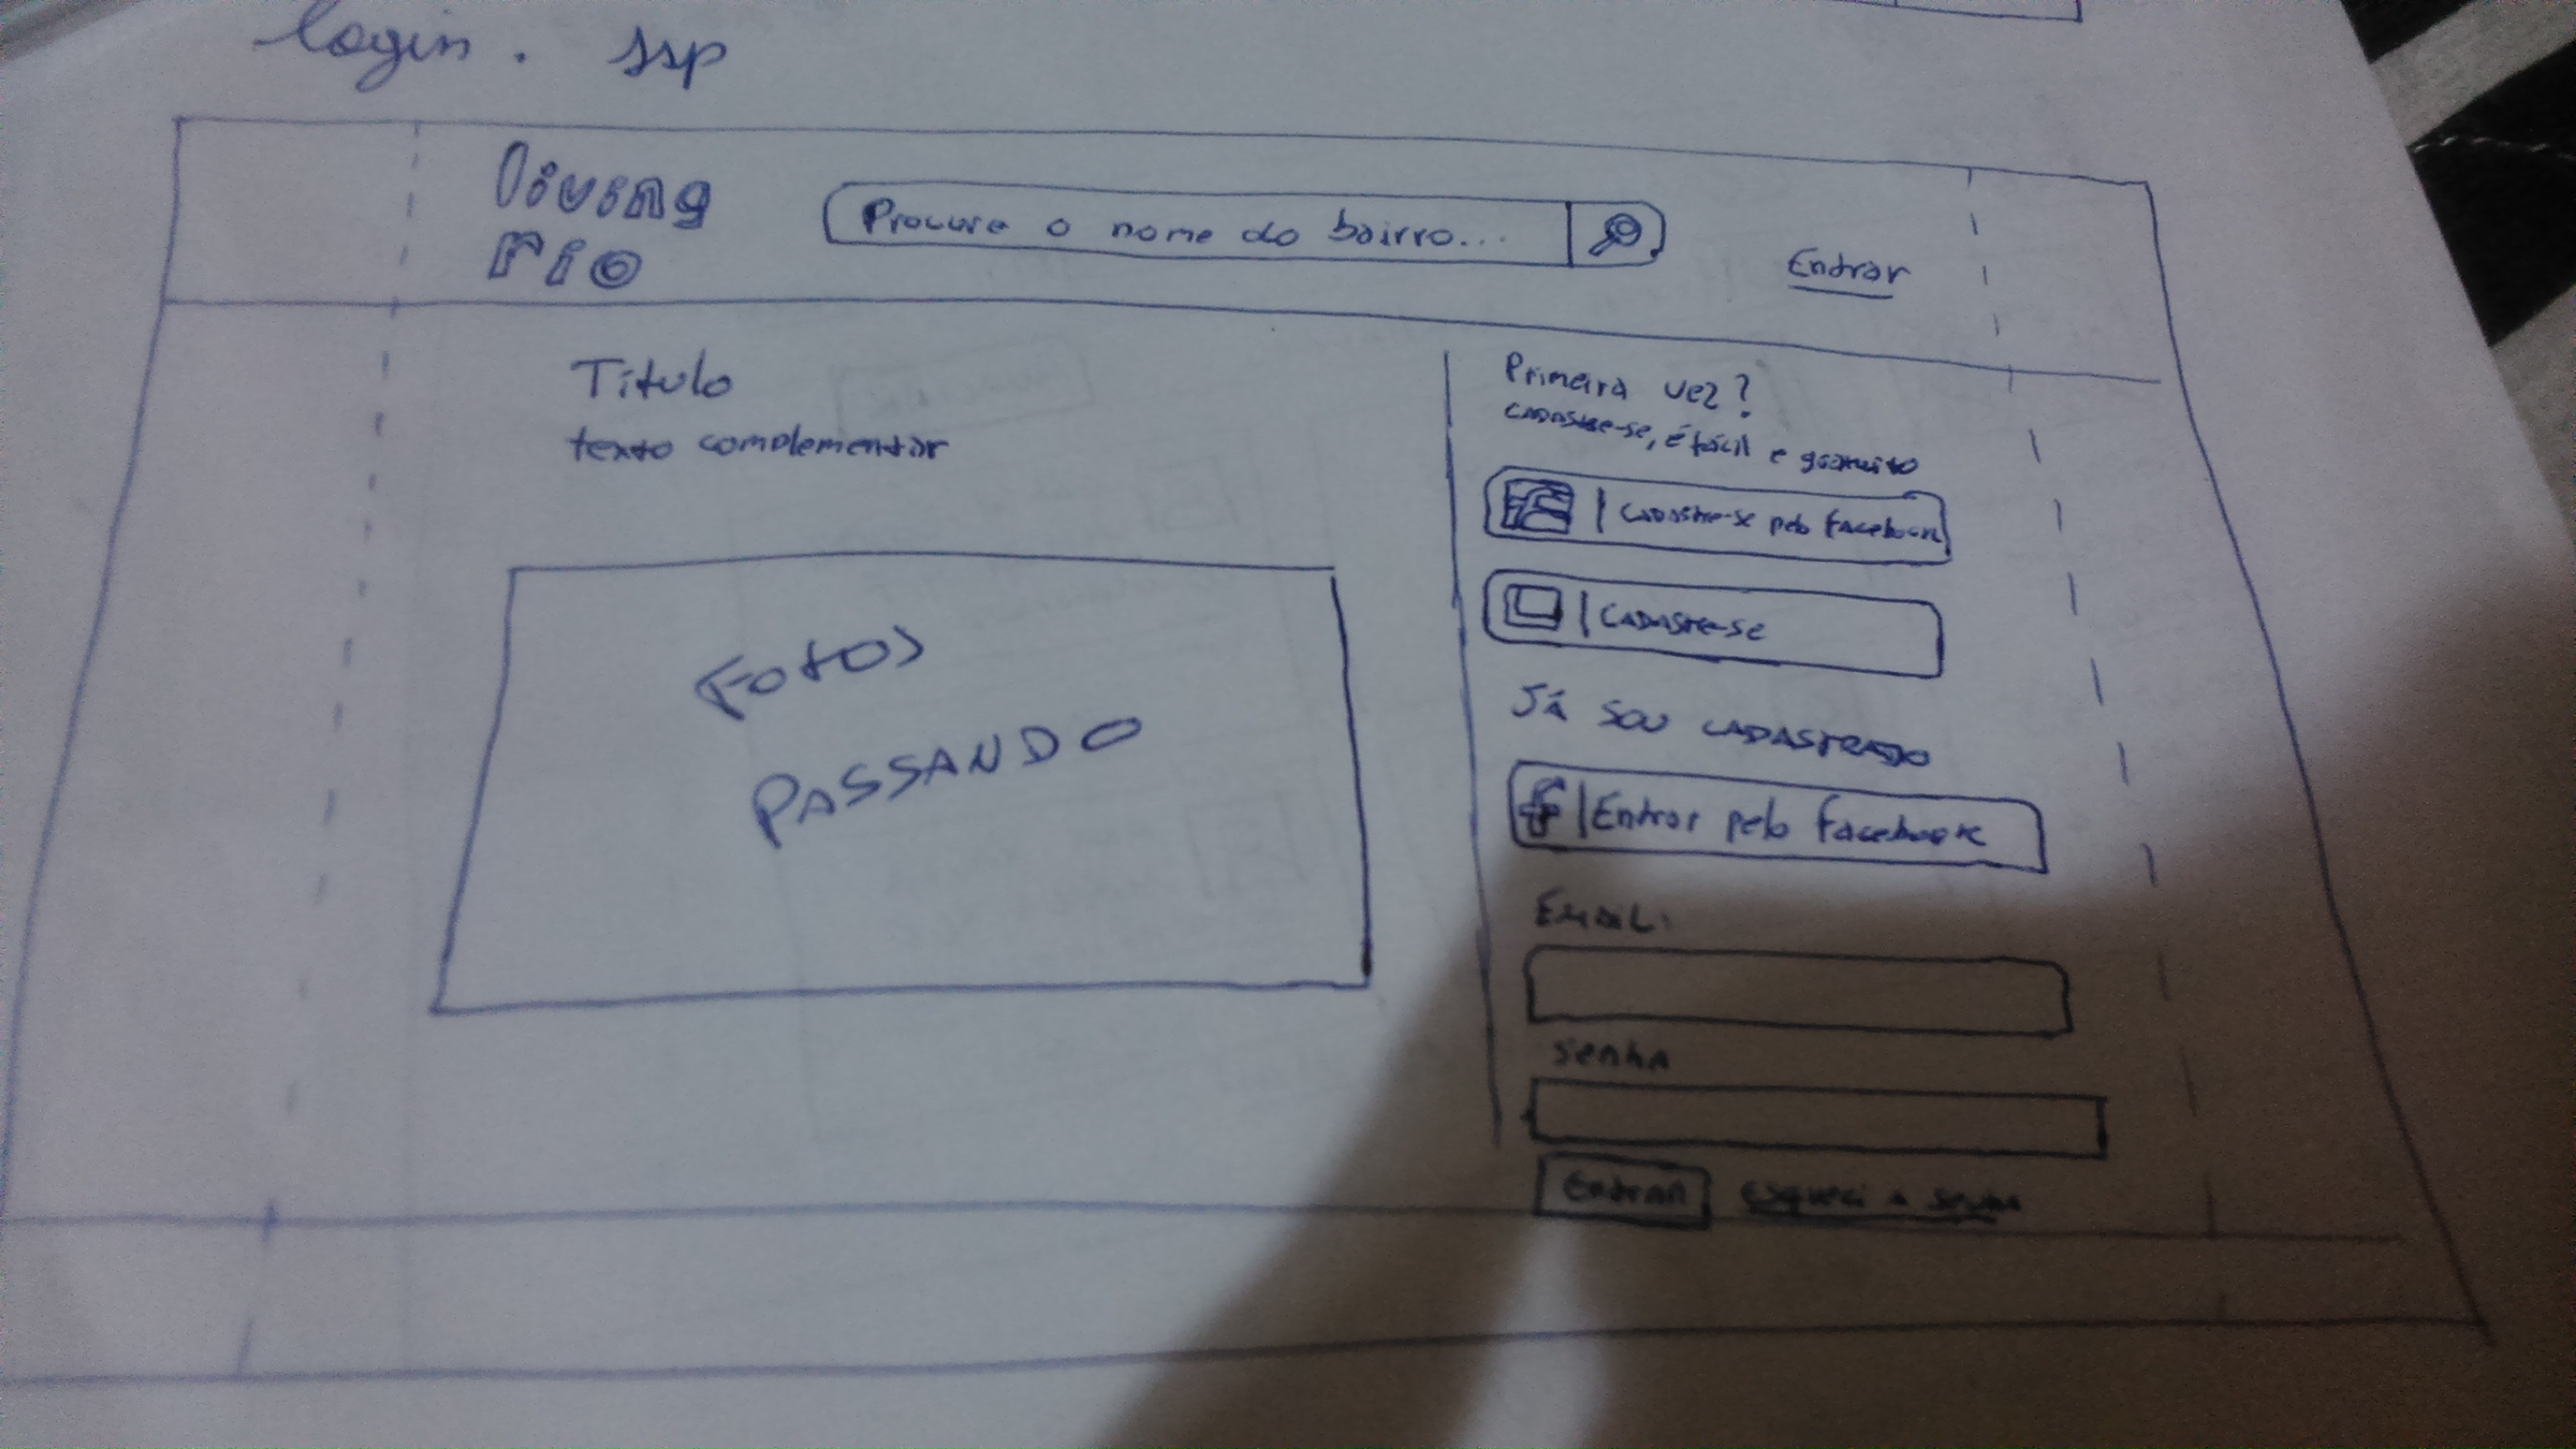 login. jsp
living
rio
Procure o nome do bairro...
Entrar
Título
texto complementar
Fotos
PASSANDO
Primeira vez?
CADASTRE-se, é fácil e gratuito
f | CADASTRE-se pelo facebook
| CADASTRE-se
JÁ SOU CADASTRADO
f | Entrar pelo facebook
EMAIL:
senha
Entrar
esqueci a senha